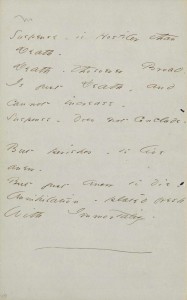 Suspense - is Hostiler than
Death -
Death - tho'soever Broad,
Is just Death, and
cannot increase -
Suspense - Does not Conclude -
But perishes - to live
anew -
But just anew to die -
Annihilation - plated fresh
With Immortality -